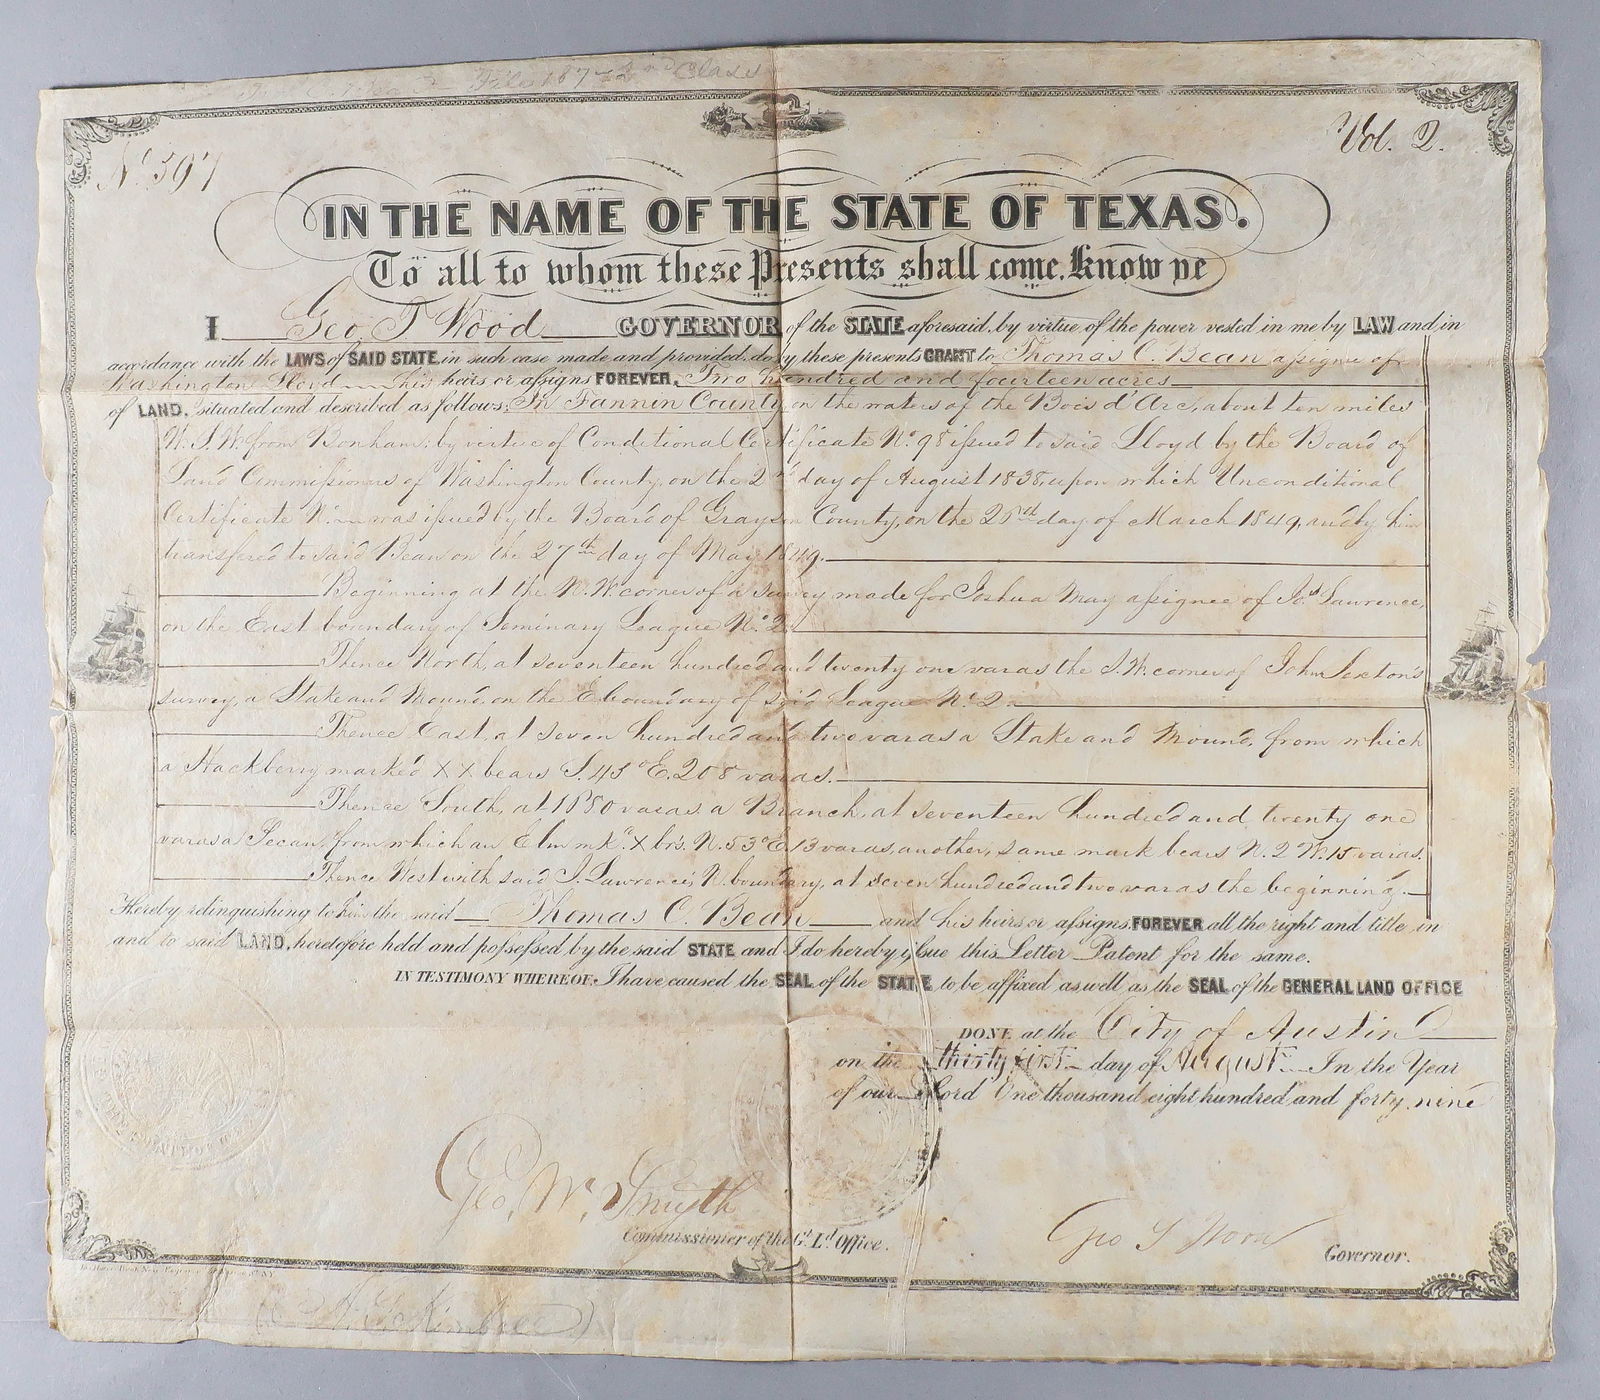 File 187 2nd Class
No 597
Vol. 2.
IN THE NAME OF THE STATE OF TEXAS.
To all to whom these Presents shall come. Know ye
I Geo T Wood GOVERNOR of the STATE aforesaid, by virtue of the power vested in me by LAW and in
accordance with the LAWS of SAID STATE in such case made and provided. do by these presents GRANT to Thomas C. Bean assignee of
Washington Lloyd his heirs or assigns FOREVER, Two hundred and fourteen acres
of LAND, situated and described as follows: In Fannin County, on the waters of the Bois d'Arc, about ten miles
W.S.W. from Bonham: by virtue of Conditional Certificate No. 98 issued to said Lloyd by the Board of
Land Commissioners of Washington County, on the 2nd day of August 1838, upon which Unconditional
Certificate No. was issued by the Board of Grayson County, on the day of March 1849, and by him
transfered to said Bean on the 27th day of May 1849.
Beginning at the N.W. corner of a survey made for Joshua May assignee of Lawrence,
on the East boundary of Seminary League No. 2.
Thence North, at seventeen hundred and twenty one varas the S.W. corner of John Sexton's
survey, a Stake and Mound, on the E. boundary of said League No. 2.
Thence East, at seven hundred and two varas a Stake and Mound, from which
a Hackberry marked X X bears S. 43° E. 208 varas.
Thence South, at varas a Branch, at seventeen hundred and twenty one
varas a Pecan, from which an Elm mkd. X brs. N. 53° E. 13 varas, another, same mark bears N. 2 W. 15 varas.
Thence West with said J. Lawrence's N. boundary, at seven hundred and two varas the beginning.
Hereby relinquishing to him the said Thomas C. Bean and his heirs or assigns FOREVER all the right and title in
and to said LAND, heretofore held and possessed by the said STATE and I do hereby issue this Letter Patent for the same.
IN TESTIMONY WHEREOF: I have caused the SEAL of the STATE to be affixed as well as the SEAL of the GENERAL LAND OFFICE
DONE at the City of Austin
on the thirty first day of August In the Year
of our Lord One thousand eight hundred and forty nine
Geo. W. Smyth
Commissioner of the Gl. Ld. Office.
Geo T Wood
Governor.